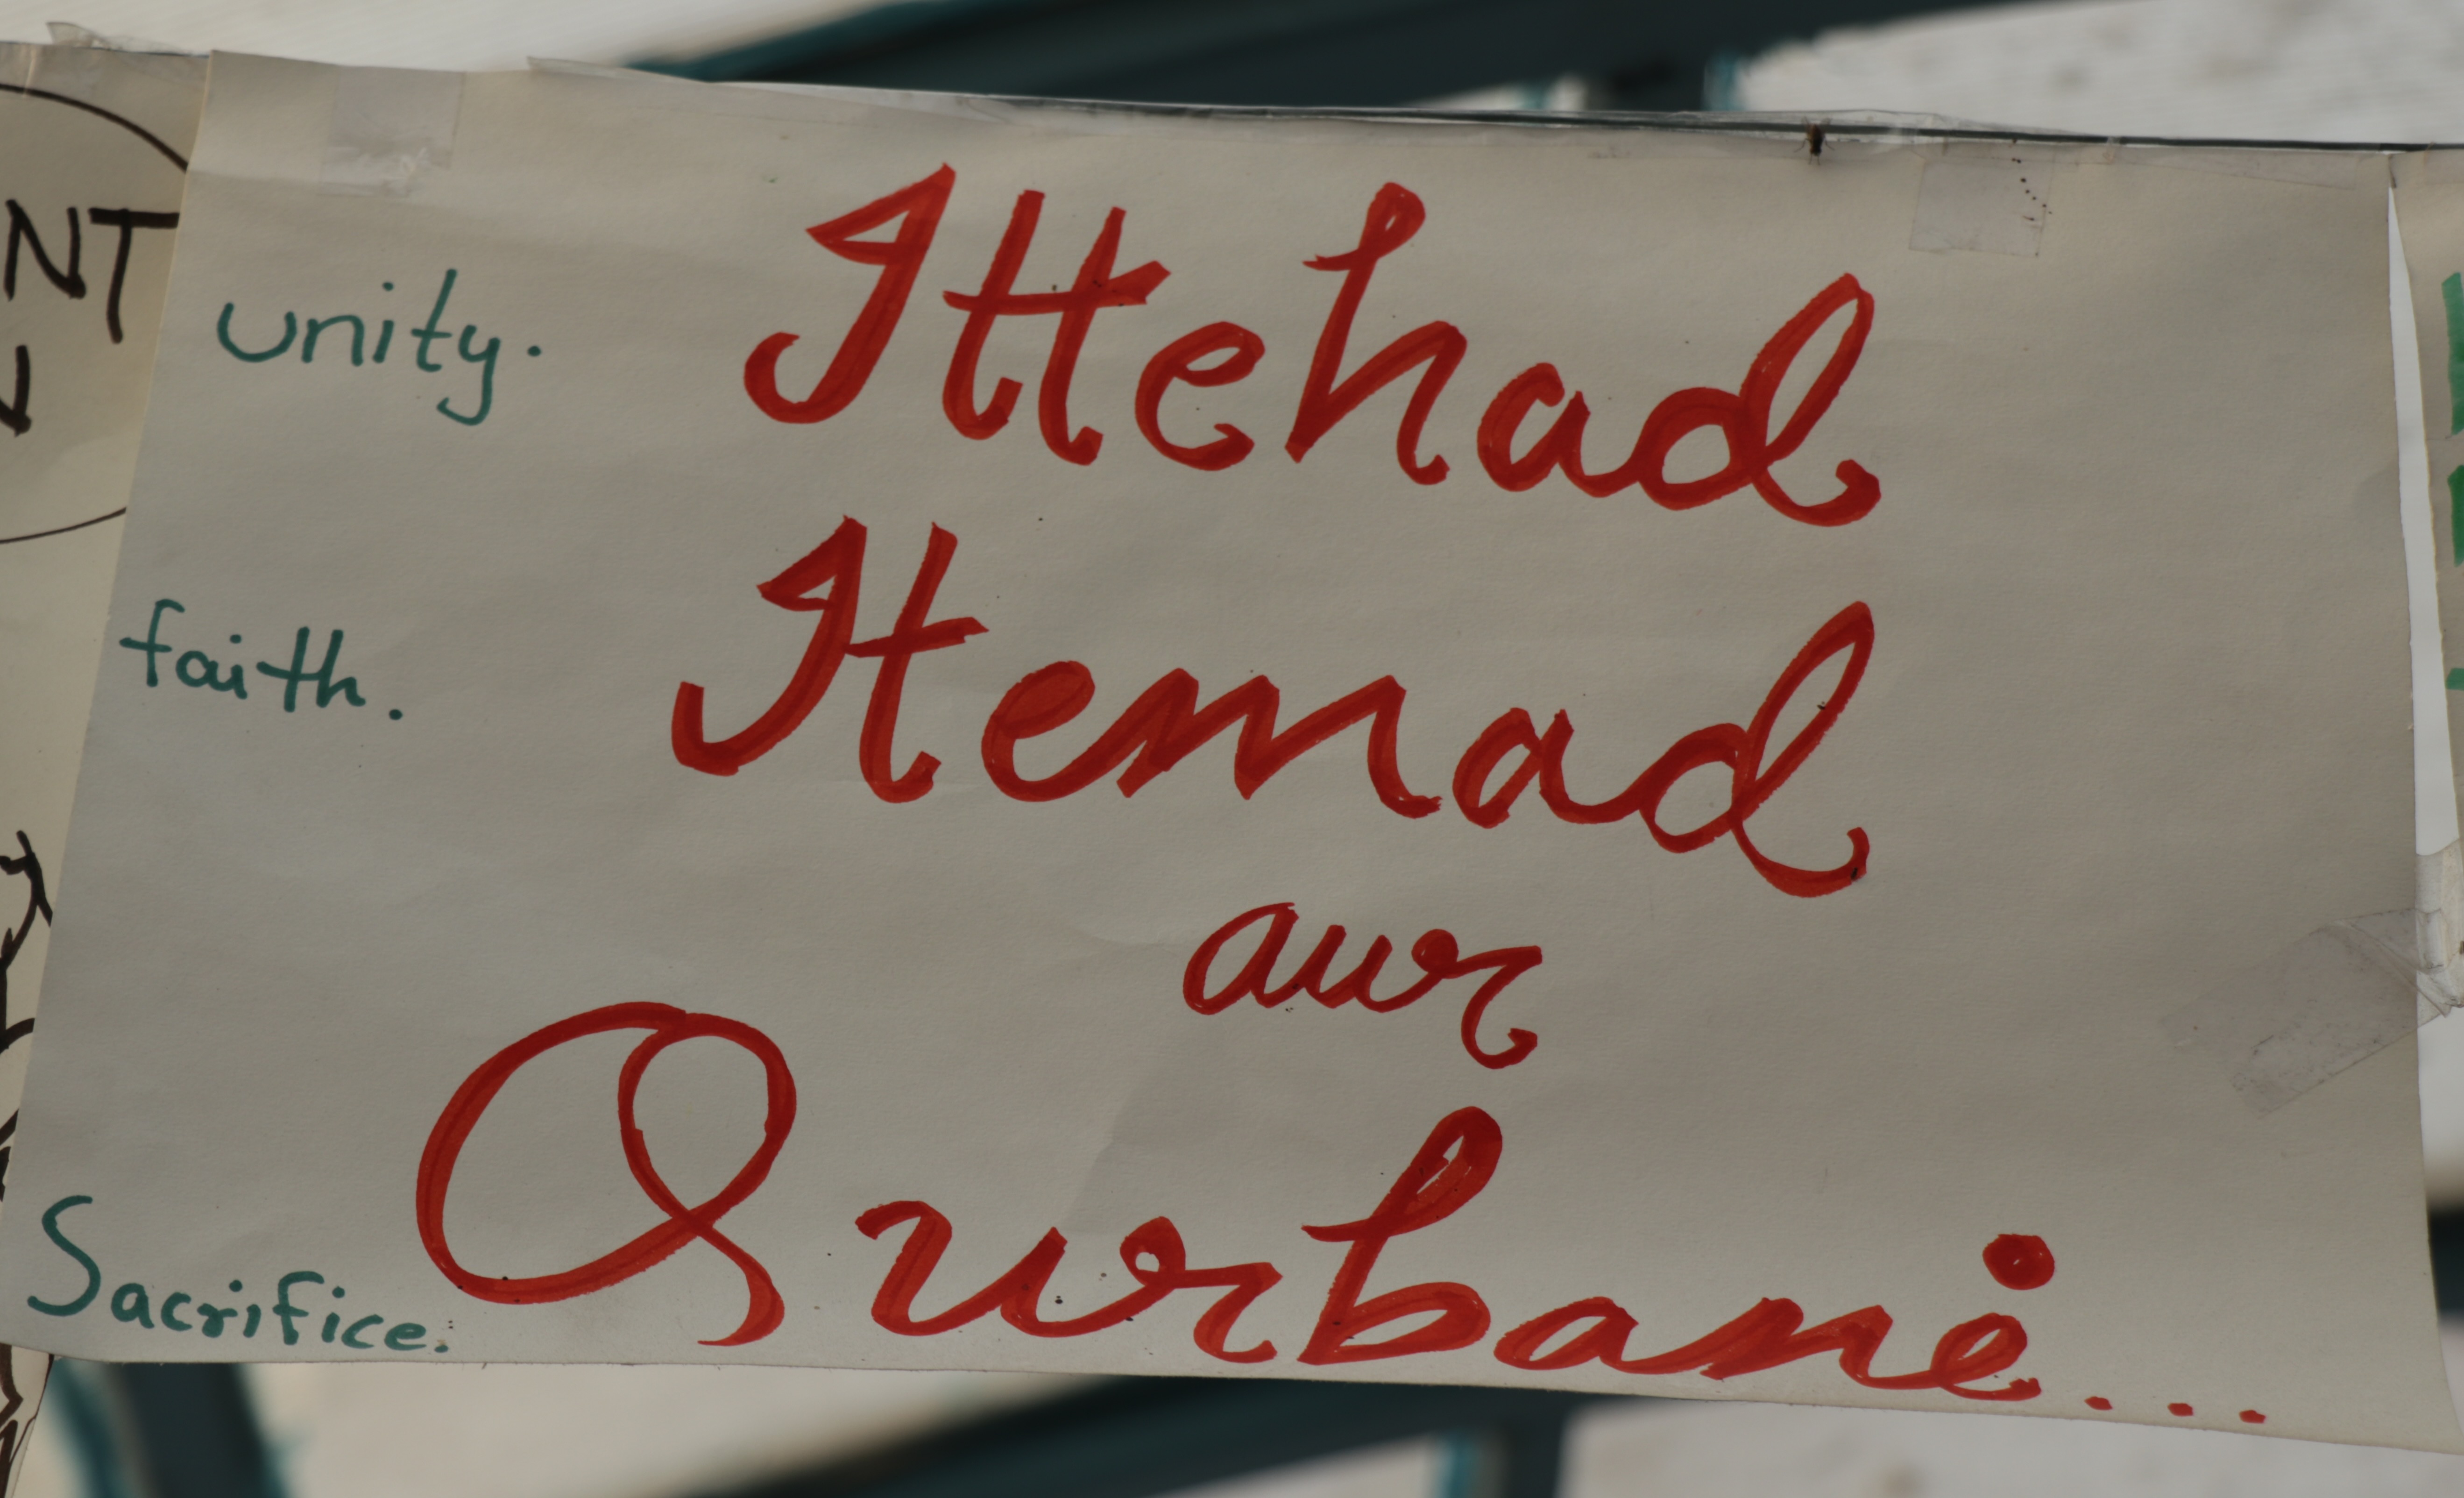 NT
unity. Ittehad
faith. Itemad
aur
Sacrifice. Qurbani...